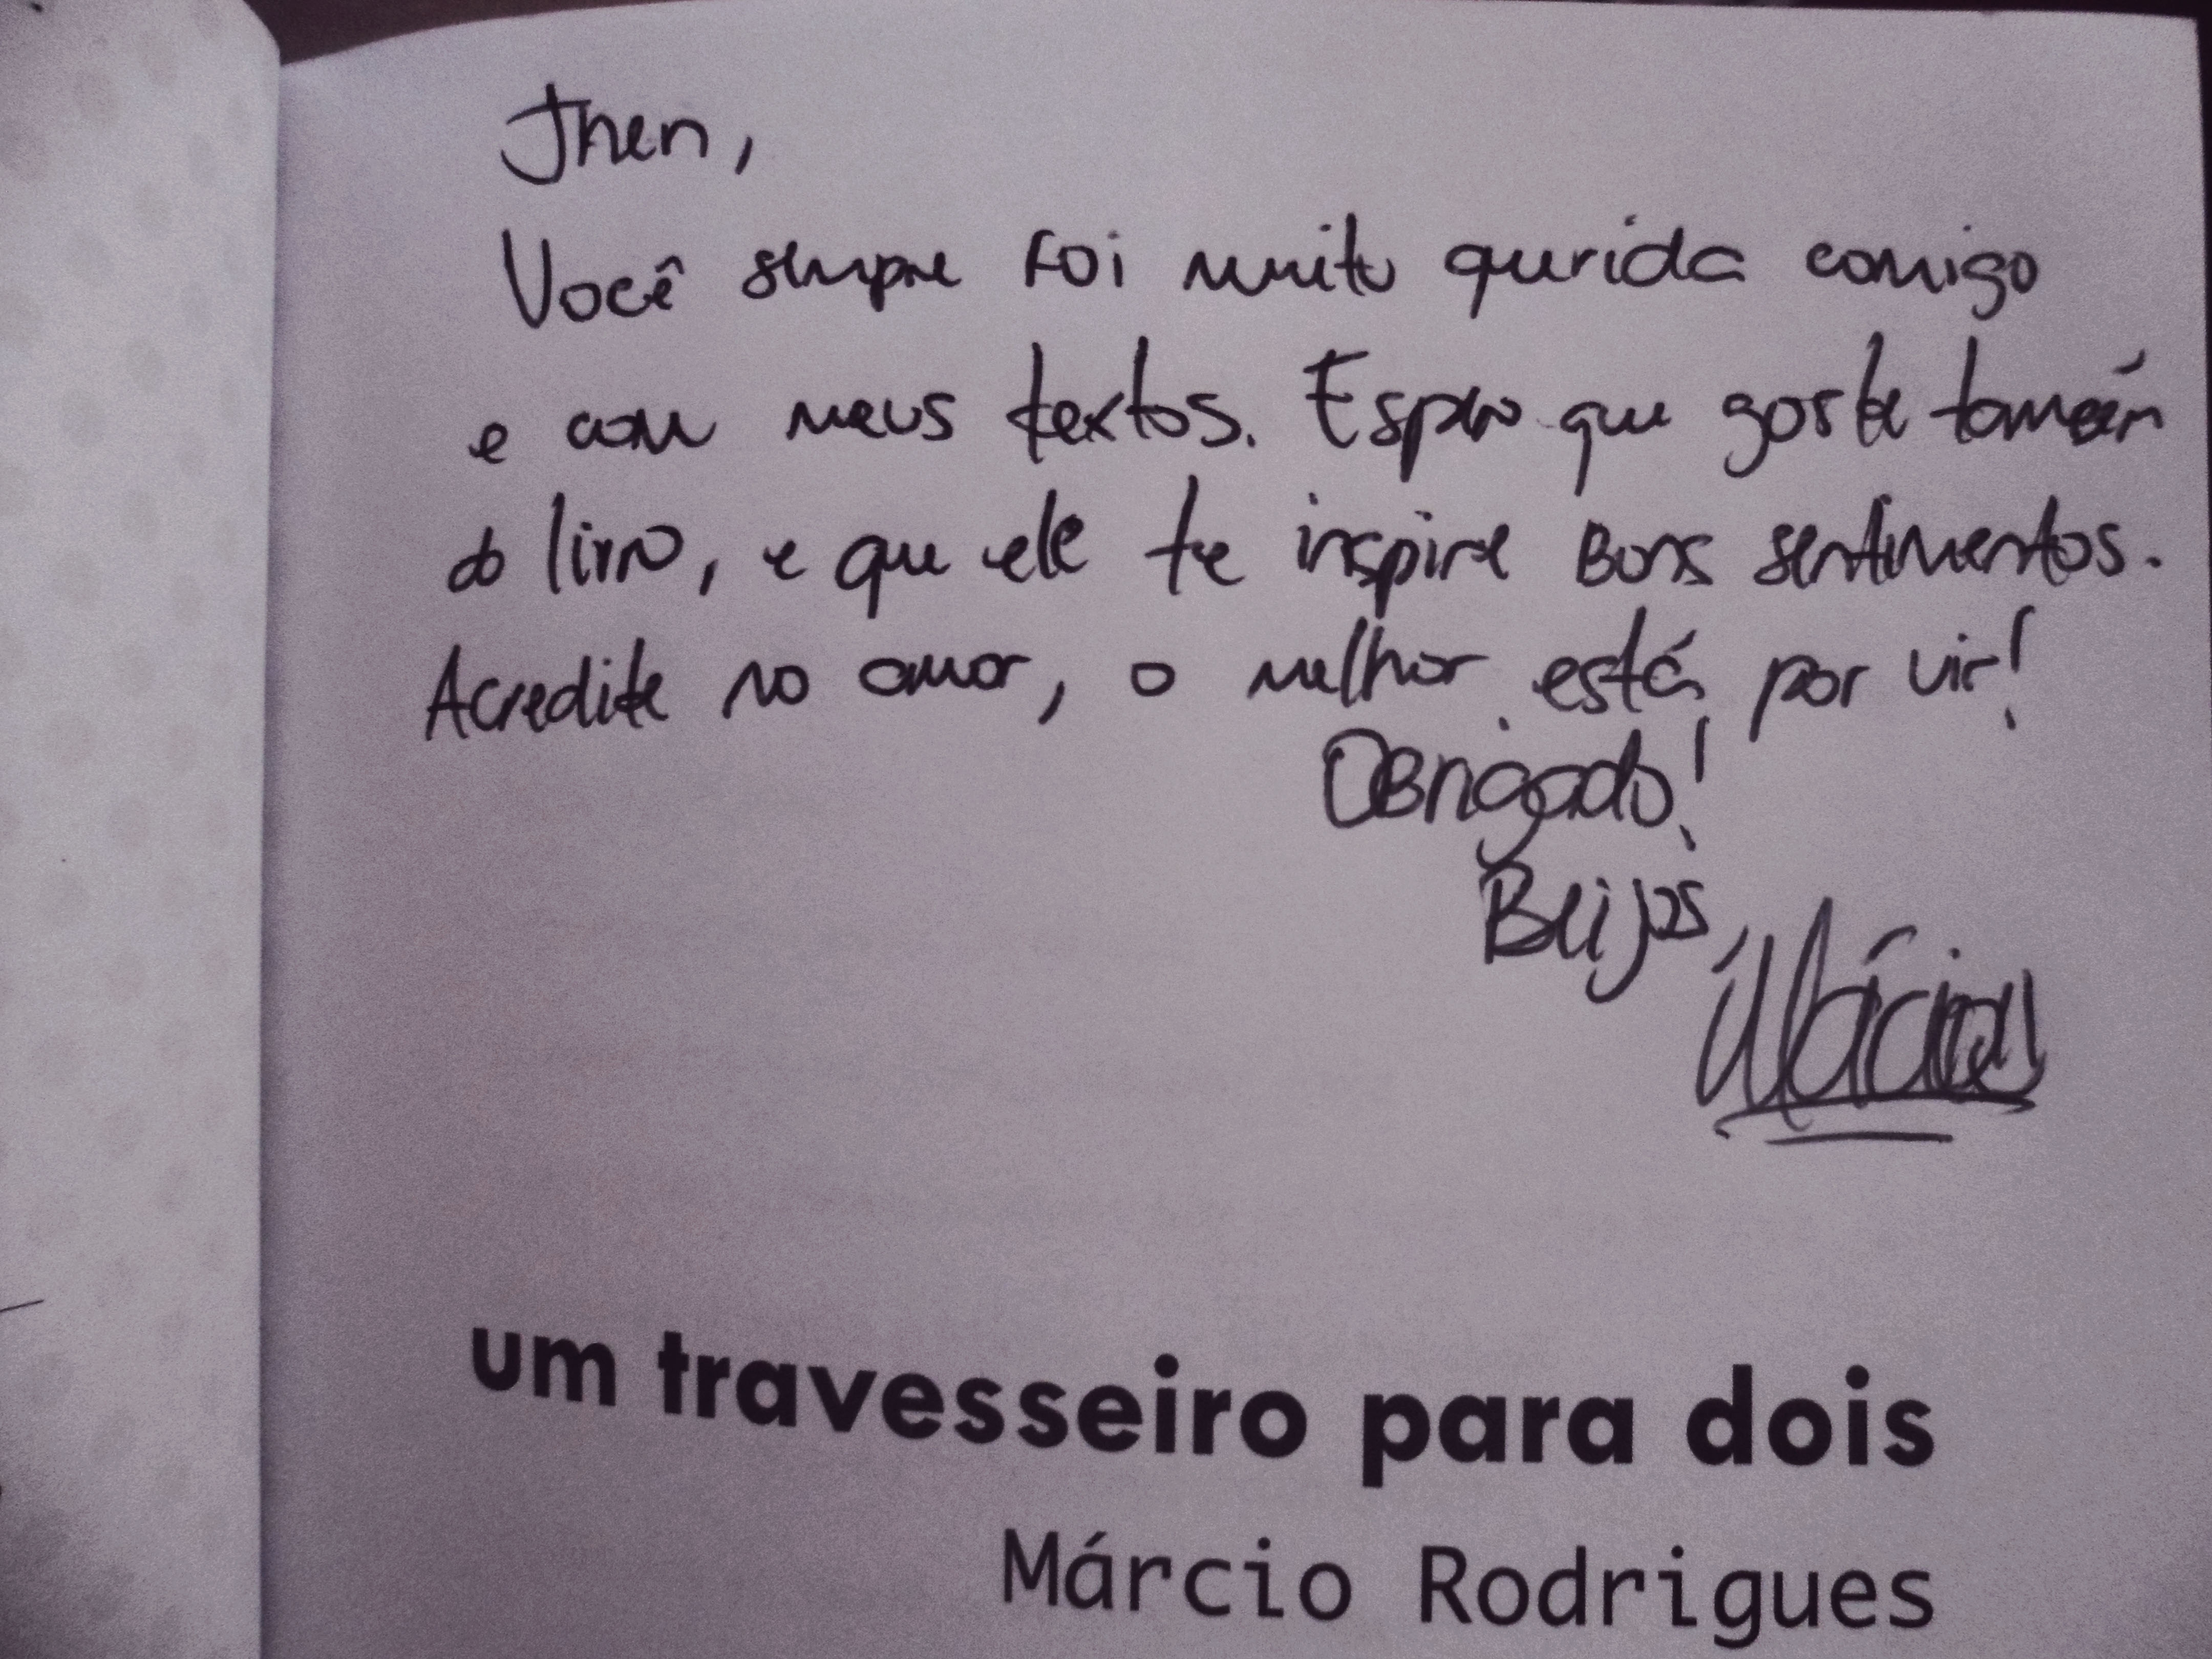 Jhen,
Você sempre foi muito querida comigo
e com meus textos. Espero que goste também
do livro, e que ele te inspire bons sentimentos.
Acredite no amor, o melhor está por vir!
Obrigado!
Beijos,
Márcio
um travesseiro para dois
Márcio Rodrigues